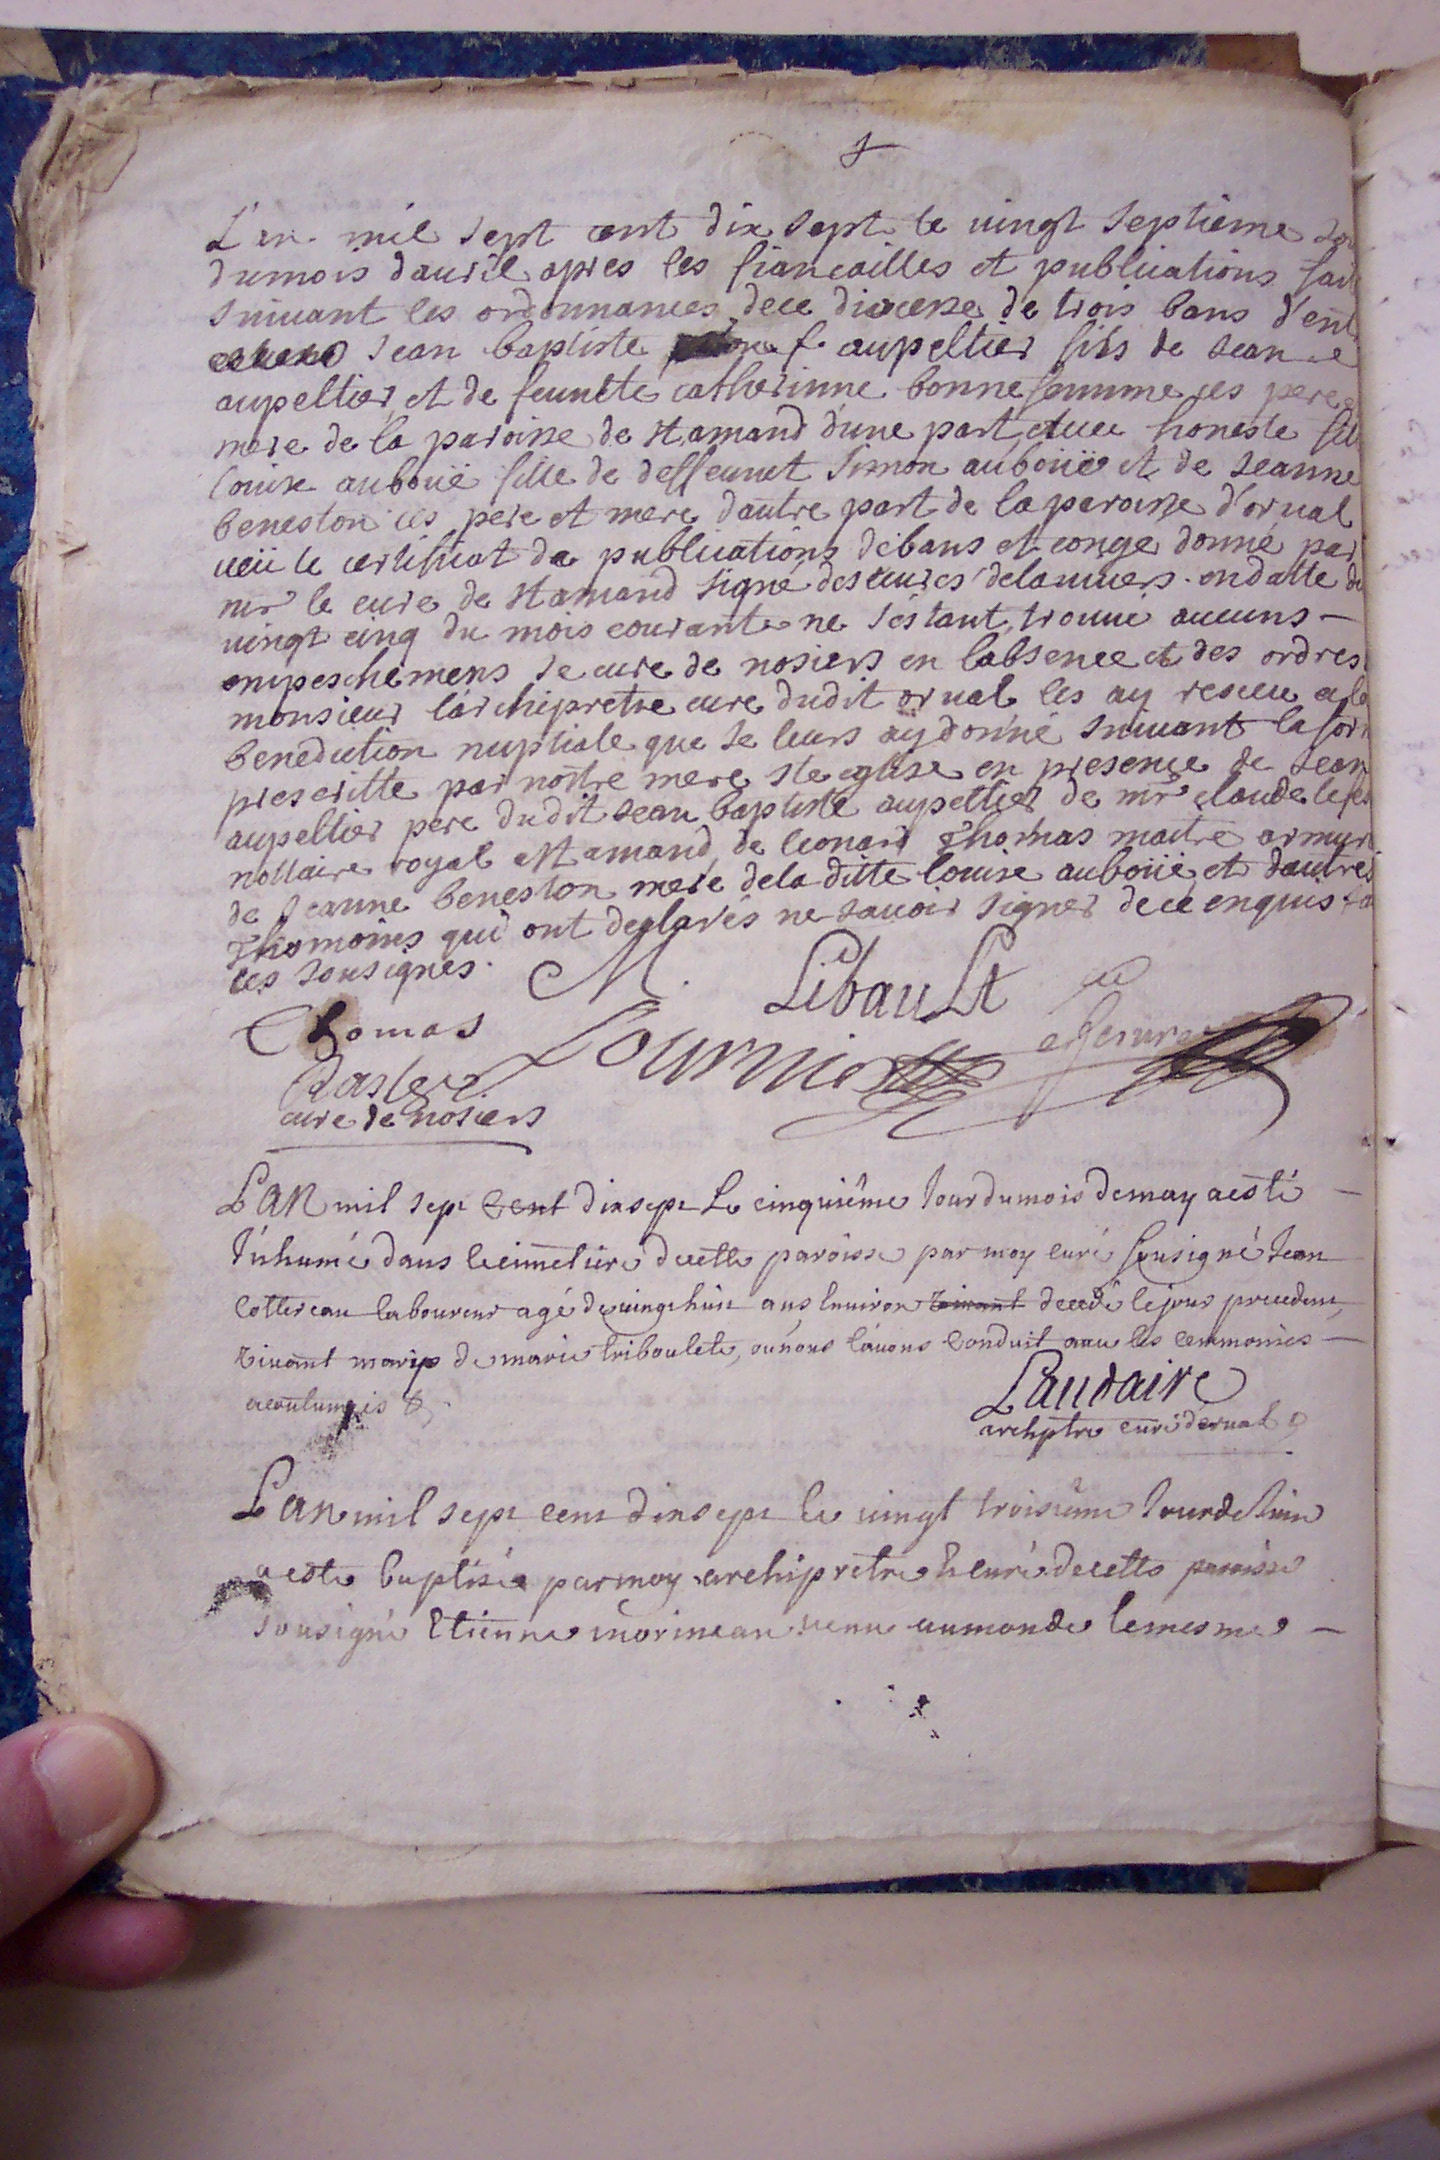 L'an mil sept cent dix sept le vingt septieme Jou
dumois davril apres les fiancailles et publications fai
suivant les ordonnances dece diocese de trois bans d'ent
Jean baptiste f. aupeltier fils de Jean
aupeltier et de feunete catherinne bonnefemme ces pere
mere de la paroisse de st amand d'une part et honeste fil
louise auboüé fille de deffeunct Simon auboüé et de Jeanne
beneston ces pere et mere dautre part de la paroisse d'orval
veü le certificat de publications debans et congé donné par
mr le cure de stamand signé desceures delanvers en datte du
vingt cinq du mois courant ne sestant trouvé aucuns —
empeschemens Je cure de nosiers en labsence et des ordres
monsieur l'archipretre cure dudit orval les ay resceu a la
benediction nuptiale que Je leurs ay donné suivant la for
prescritte par nostre mere ste eglise en presence de Jean
aupeltier pere dudit Jean baptiste aupeltier de mr claude lefe
nottaire royal a st amand, de leonard Thomas maitre armur
de Jeanne beneston mere dela ditte louise auboüé et dautres
Thomoins qui ont declarés ne savoir signer dece enquis
ces sousignés.
M. Libault
Thomas
Fournier
cure de nosiers
LAN mil sept Cent dixsept Le cinquiéme Jour dumois demay aesté
Inhumé dans lecimetiere decette paroisse par moy curé Sousigné Jean
Cottereau laboureur agé devingthuit ans Environ vivant decedé lejour precedent
vivant marip de marie triboulete, ou nous l'avons Conduit avec les ceremonies —
acoutumeis &
Laudaire
archptre curé dorval
LAN mil sept cent dixsept le vingt troisiéme Jourde Juin
aesté baptisé parmoy archipretre & curé decette paroisse
sousigné Etienne morineau venu aumonde lemesme —